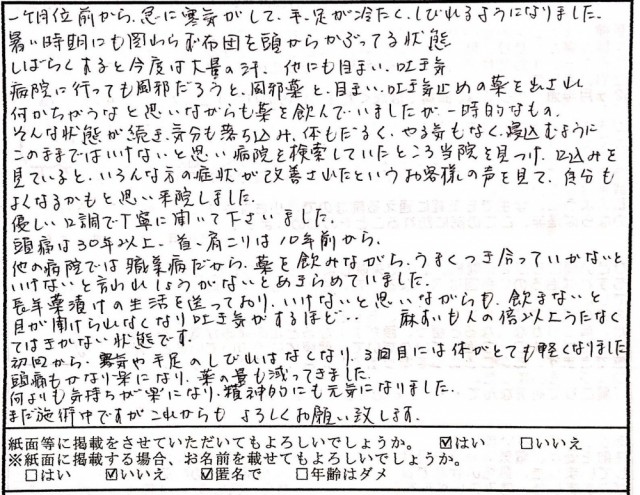 一ケ月位前から、急に寒気がして、手、足が冷たく、しびれるようになりました。
暑い時期にも関わらずお布団を頭からかぶってる状態
しばらくすると今度は大量の汗、他にも目まい、吐き気
病院に行っても風邪だろうと、風邪薬と、目まい、吐き気止めの薬を出され
何かちがうなと思いながらも薬を飲んでいましたが、一時的なもの。
そんな状態が続き、気分も落ち込み、体もだるく、やる気もなく、寝込むように
このままではいけないと思い病院を検索していたところ当院を見つけ、口込みを
見ていると、いろんな方の症状が改善されたというお客様の声を見て、自分も
よくなるかもと思い来院しました。
優しい口調で丁寧に聞いて下さいました。
頭痛は30年以上、首、肩こりは10年前から。
他の病院では職業病だから、薬を飲みながら、うまくつき合っていかないと
いけないと言われしょうがないとあきらめていました。
長年薬漬けの生活を送っており、いけないと思いながらも、飲まないと
目が開けられなくなり吐き気がするほど… 麻すいも人の倍以上うたなく
てはきかない状態です。
初回から、寒気や手足のしびれはなくなり、3回目には体がとても軽くなりました
頭痛もかなり楽になり、薬の量も減ってきました。
何よりも気持ちが楽になり、精神的にも元気になりました。
まだ施術中ですがこれからも よろしくお願い致します。
紙面等に掲載をさせていただいてもよろしいでしょうか。 ☑はい □いいえ
※紙面に掲載する場合、お名前を載せてもよろしいでしょうか。
□はい ☑いいえ ☑匿名で □年齢はダメ